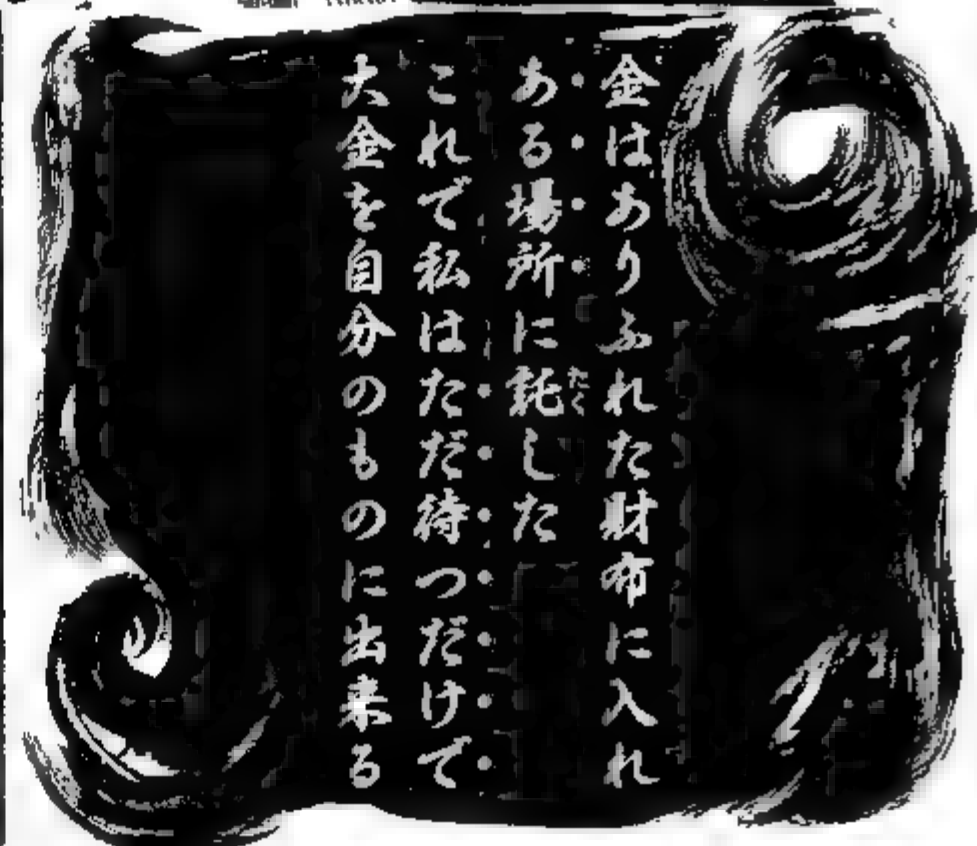 金はありふれた財布に入れ
ある場所に託した
これで私はただ待つだけで
大金を自分のものに出来る